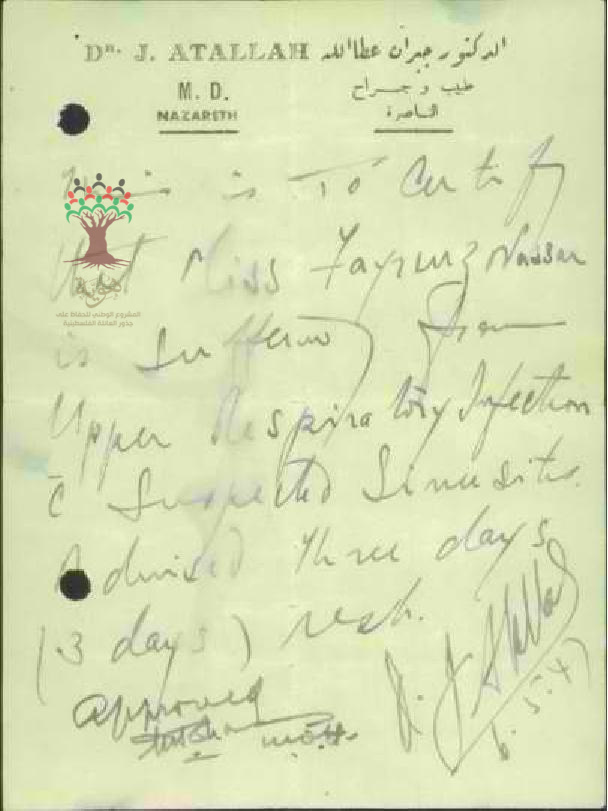 Dr. J. ATALLAH الدكتور جبران عطاالله
M. D. طبيب وجـــراح
NAZARETH الناصرة
This is To Certify
that Miss Fayruz Nassar
is suffering from
Upper Respiratory Infection
c̄ Suspected Sinusitis.
Advised three days
(3 days) rest.
Approved
J. Atallah
6.5.47
المشروع الوطني للحفاظ على
جذور العائلة الفلسطينية